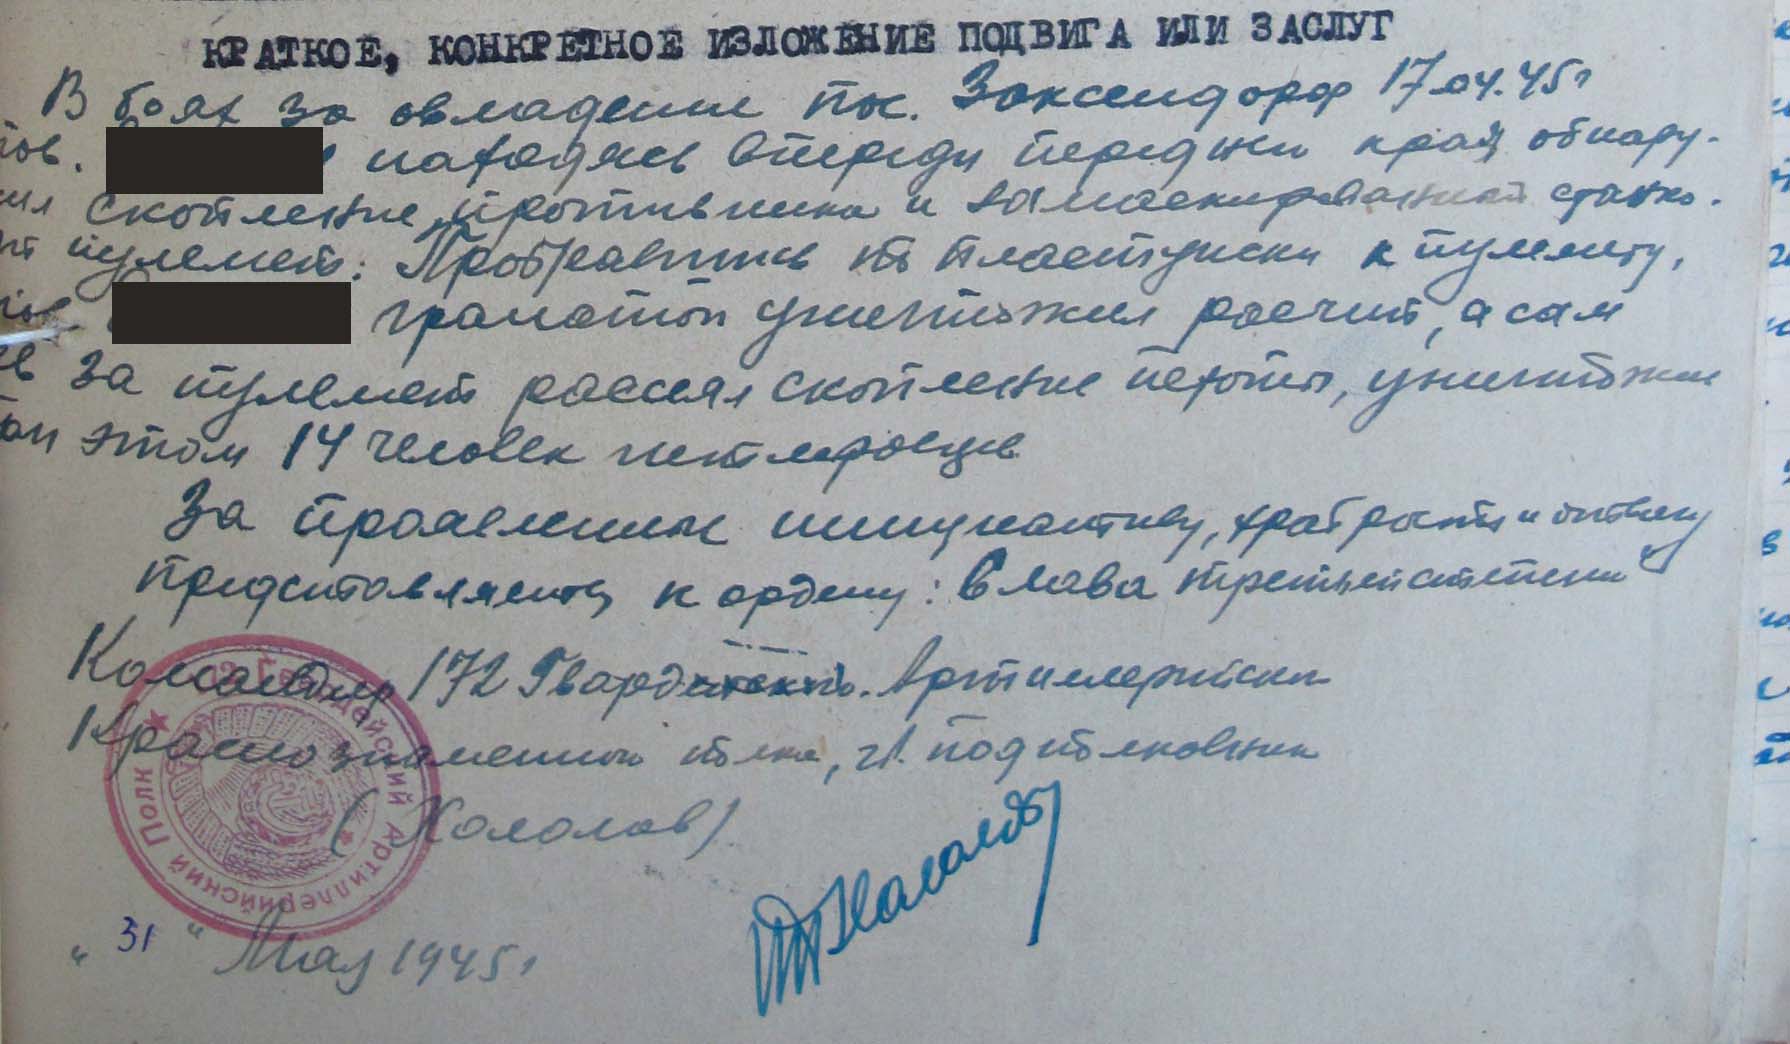 КРАТКОЕ, КОНКРЕТНОЕ ИЗЛОЖЕНИЕ ПОДВИГА ИЛИ ЗАСЛУГ
В боях за овладение пос. Заксендорф 17.04.45г
тов. находясь впереди передний край обнару-
жил скопление противника и замаскированный станко-
пулемет. Пробравшись по пластунски к пулемету,
гранатой уничтожил расчит, а сам
за пулемет рассеял скопление пехоты, уничтожив
при этом 14 человек гитлеровцев
За проявленные инициативу, храбрость и отвагу
представляется к ордену: "Слава третьей степени"
Командир 172 Гвард. Артиллерийский
Краснознаменный полка, гв. подполковник
(Хололов)
"31" Мая 1945г
Гвардейский Артиллерийский Полк